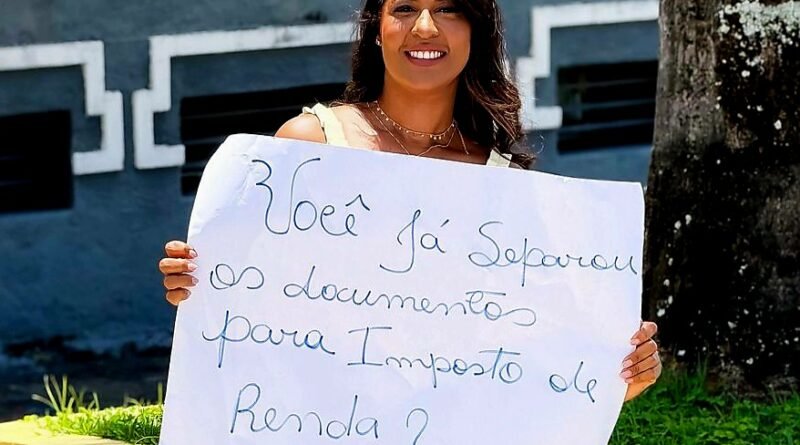 Você Já Separou
os documentos
para Imposto de
Renda?